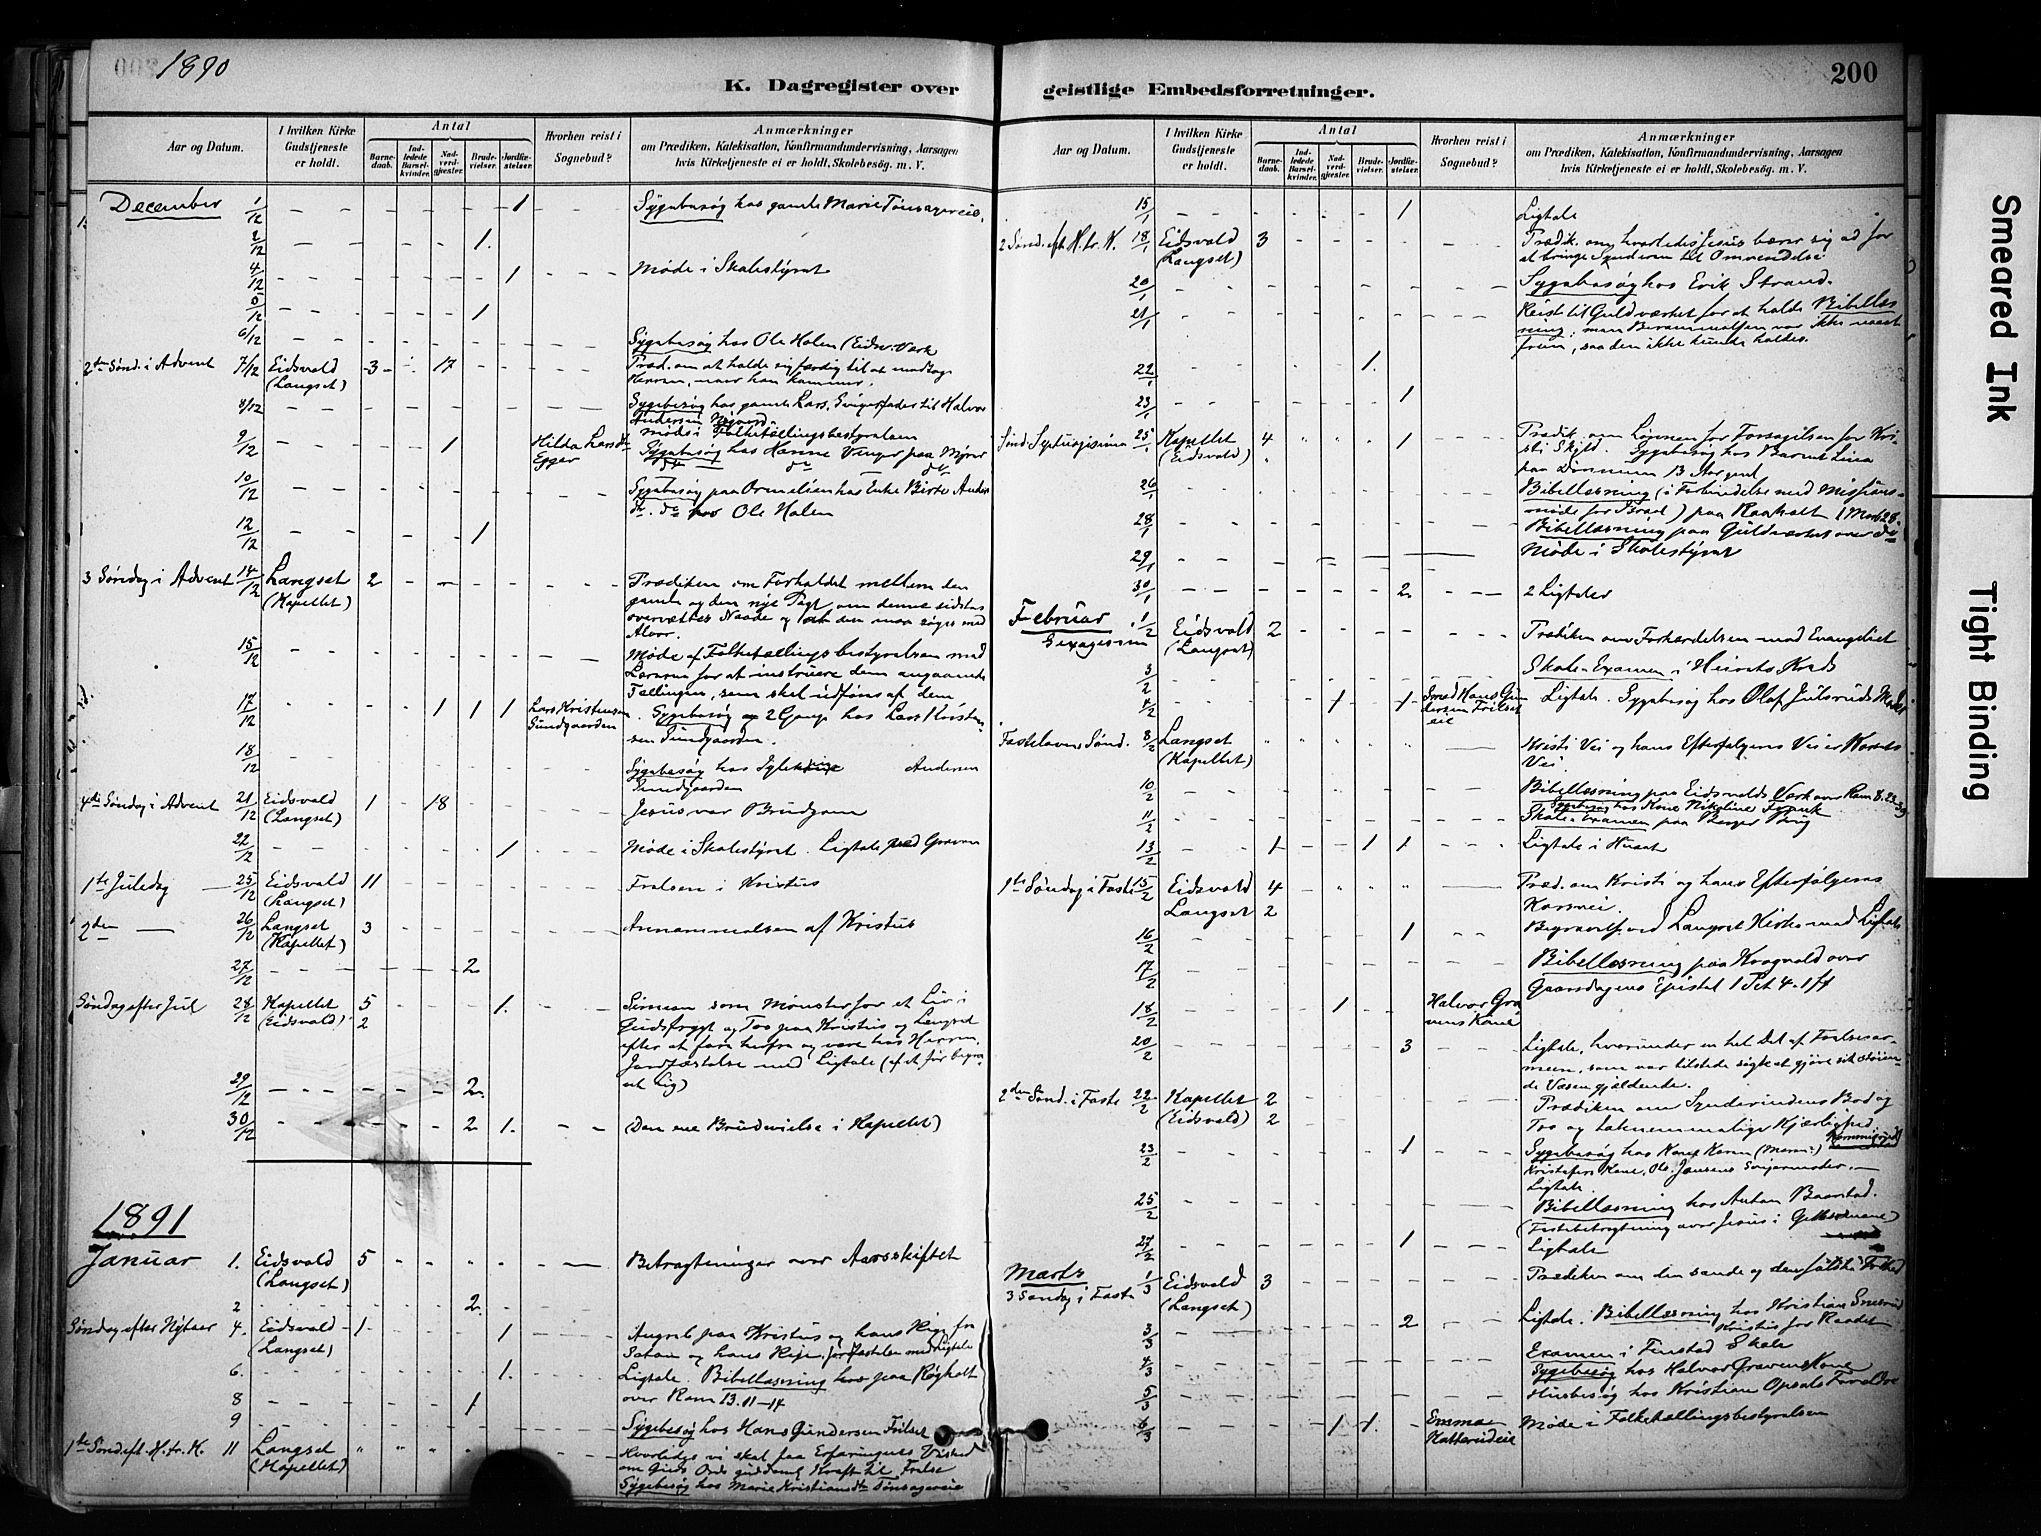 1890
K. Dagregister over
Aar og Datum.
I hvilken Kirke Gudstjeneste er holdt.
Antal
Barnedaab.
Indledede Barselkvinder.
Nadverdgjester.
Brudevielser.
Jordfæstelser.
Hvorhen reist i Sognebud?
Anmærkninger
om Prædiken, Katekisation, Konfirmandundervisning, Aarsagen
hvis Kirketjeneste ei er holdt, Skolebesøg. m. V.
December 1/12 1 Sygebesøg hos gamle Marie Tønsagereie.
2/12 1.
4/12 1 Møde i Skolestyret
5/12 1
6/12 Sygebesøg hos Ole Holen (Eidsv. Værk
2den Sønd. i Advent 7/12 Eidsvold 3 17 Præd. om at holde sig færdig til at modtage
(Langset) Herren, naar han kommer.
8/12 Sygebesøg hos gamle Lars, Svigerfader til Halvor
Andersen
Møde i Folketællingsbestyrelsen
9/12 1 Hilda Larsdtr Sygebesøg hos Hanne Venger paa Myrer
10/12 Sygebesøg paa hos Enke Birte Anders
do. do hos Ole Holen
12/12 1
3 Søndag i Advent 14/12 Langset 2 Prædiken om Forholdet mellem den
(Kapellet) gamle og den nye Pagt, om denne sidstes
overvættes Naade og at den maa søges med
Alvor.
15/12 Møde af Folketællingsbestyrelsen med
Lærerne for at instruere dem angaaende
Tællingen, som skal udføres af dem
17/12 1 1 1 Lars Kristensen Sygebesøg og 2 Gange hos Lars Kristen
Sundgaarden sen Sundgaarden.
18/12 Sygebesøg hos Andersen
Sundgaarden
4de Søndag i Advent 21/12 Eidsvold 1 18 Jesus vor Brudgom
(Langset)
22/12 1 Møde i Skolestyret. Ligtale ved Graven
1ste Juledag 25/12 Eidsvold 11 Frelsen i Kristus
(Langset)
2den 26/12 Langset 3 Annammelsen af Kristus
(Kapellet)
27/12 2
Søndag efter Jul 28/12 Kapellet 5 1. Simeon som Mønster for et Liv i
(Eidsvold) 2 Gudsfrygt og Tro paa Kristus og Længsel
efter at fare herfra og være hos Herren.
Jordfæstelse med Ligtale (af et før begra-
vet Lig)
29/12 2.
30/12 2 1. (Den ene Brudevielse i Kapellet)
1891
Januar 1. Eidsvold 5 Betragtninger over Aarsskiftet
(Langset)
2 2.
Søndag efter Nytaar 4. Eidsvold 1 1 Angreb paa Kristus og hans Rige fra
(Langset) Satan og hans Rige. Jordfæstelse med Ligtale
6. 1. Ligtale. Bibellæsning hos paa Røgholt
8 1 over Rom 13. 11-14
9 Sygebesøg hos Hans Gundersen Frilset
1ste Sønd. eft. H. tr. K. 11 Langset Hvorledes vi skal faa Erfaringens Vished
(Kapellet) om Guds Ords guddoml. Kraft til Frelse
Sygebesøg hos Marie Kristiansdtr Tønsagereie
200
geistlige Embedsforretninger.
Aar og Datum.
I hvilken Kirke Gudstjeneste er holdt.
Antal
Barnedaab.
Indledede Barselkvinder.
Nadverdgjester.
Brudevielser.
Jordfæstelser.
Hvorhen reist i Sognebud?
Anmærkninger
om Prædiken, Katekisation, Konfirmandundervisning, Aarsagen
hvis Kirketjeneste ei er holdt, Skolebesøg. m. V.
15/1 1 Ligtale
2 Sønd. eft. H. tr. K. 18/1 Eidsvold 3 Prædik. om, hvorledes Jesus bærer sig ad for
(Langset) at bringe Synderen til Omvendelse
20/1 Sygebesøg hos Erik Strand.
21/1 Reist til Guldværket for at holde Bibellæs
ning, men Berammelsen var ikke naaet
frem, saa den ikke kunde holdes.
22/1 1.
23/1 1
Sønd. Septuagesima 25/1 Kapellet 4 1 Prædik. om Lønnen for Forsagelsen for Kri-
(Eidsvold) sti Skyld. Sygebesøg hos Berntine
26/1 Bibellæsning (i Forbindelse med Missions-
møde for Israel) paa Raaholt
28/1 Bibellæsning paa Guldværket over do
29/1 Møde i Skolestyret
30/1 2. 2 Ligtaler
Februar 1/2 Eidsvold 2 Prædiken om Forhærdelsen mod Evangeliet
Sexagesima (Langset)
3/2 Skole-Examen i Kreds
4/2 1 1 Smed Hans Gun Ligtale. Sygebesøg hos Olaf Julsruds Moder
dersen Frilset
eie
Fastelavns Sønd. 8/2 Langset Kristi Vei og hans Efterfølgeres Vei er Korsets
(Kapellet) Vei.
10/2 Bibellæsning paa Eidsvolds Værk over Rom 8. 23-39
Sygebesøg hos Kone Nikoline
11/2 Skole-Examen paa Berger
13/2 1 1 1 Ligtale i Huset
1ste Søndag i Faste 15/2 Eidsvold 4 Præd. om Kristi og hans Efterfølgeres
Langset 2 Korsvei.
16/2 1 Begravelse ved Langset Kirke med Ligtale
17/2 Bibellæsning paa Kragvold over
Gaarsdagens Epistel 1 Pet 4. 1 ff
18/2 1 Halvor Gra
vens Kone
20/2 3 Ligtale, hvorunder en hel Del af Frelsesar-
meen, som var tilstede søgte at gjøre sit støien-
de Væsen gjældende.
2den Sønd. i Faste 22/2 Kapellet 2 Prædiken om Synderindens Bod og
(Eidsvold) 2 Tro og taknemmelige Kjærlighed
23/2 1 Sygebesøg hos Kone Karen
Kristofers Kone, Ole Jensens Svigermoder.
Ligtale.
25/2 Bibellæsning hos Anton Baarstad.
(Fastebetragtning over Jesus i Getsemane)
27/2 1 Ligtale
Marts 1/3 Eidsvold 3 Prædiken om den sande og den falske
3 Søndag i Faste (Langset)
3/3 2 Ligtale. Bibellæsning hos Kristian
Kristus for Raadet
4/3 Examen i Finstad Skole
Sygebesøg hos Halvor Gravens Kone
5/3 Husbesøg hos Kristian Opsals Forældre
6/3 1 1. Emma Møde i Folketællingsbestyrelsen
Smeared Ink
Tight Binding